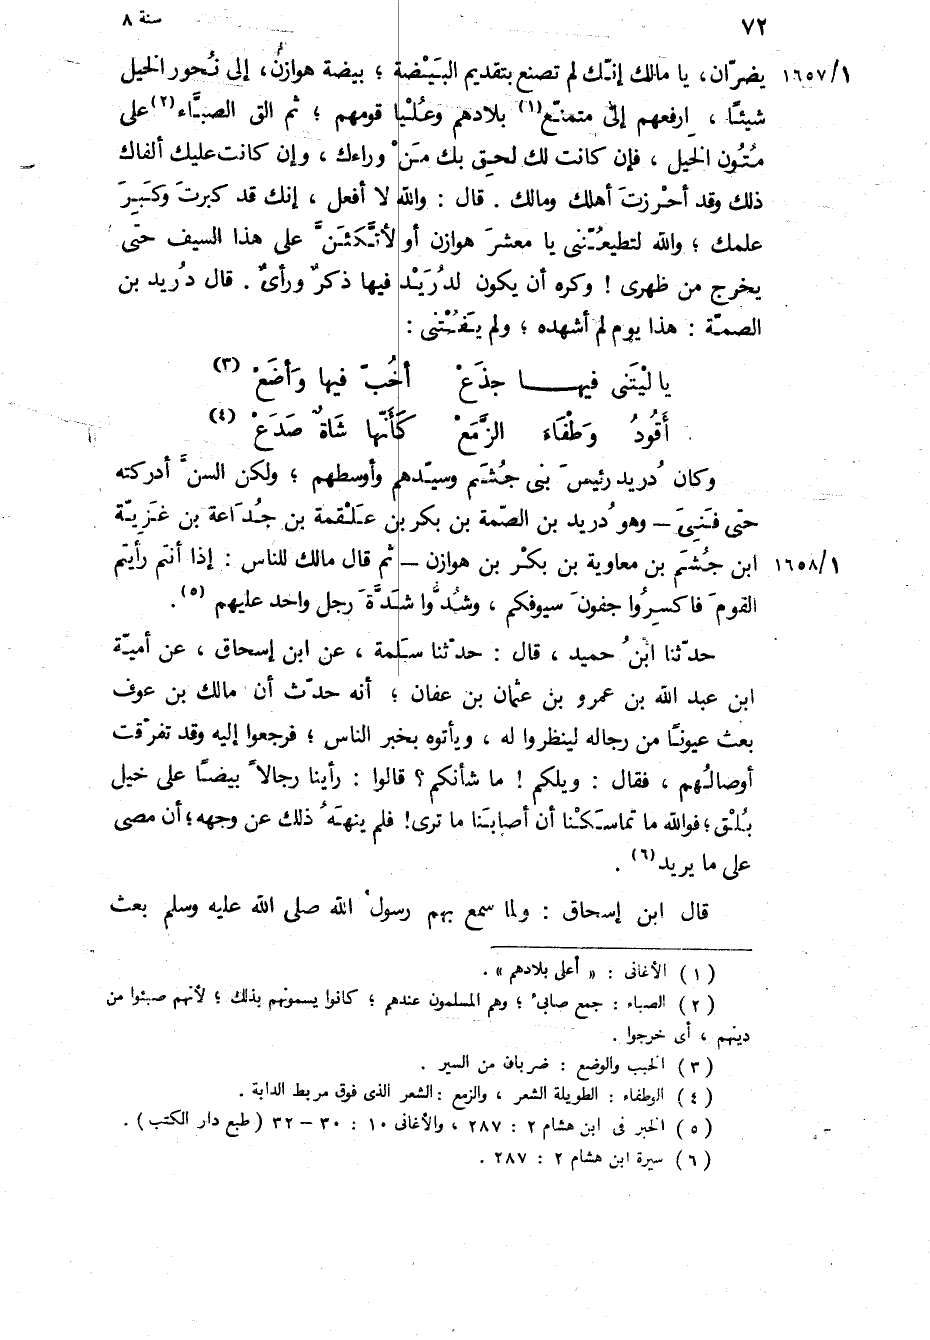 ٧٢
سنة ٨
١٦٥٧/١ يضرّان، يا مالك إنّك لم تصنع بتقديم البَيْضة ؛ بيضة هوازنُ، إلى نُحور الخيل
شيئًا ، ارفعهم إلى متمنّع (١) بلادهم وعُلْيا قومهم ؛ ثم الق الصبَّاء (٢) على
مُتُون الخيل ، فإن كانت لك لحق بك مَنْ وراءك ، وإن كانت عليك ألفاك
ذلك وقد أحْرزتَ أهلك ومالك . قال : والله لا أفعل ، إنك قد كبرتَ وكَبِرَ
علمك ؛ والله لتطيعُنّنى يا معشرَ هوازن أو لأتَّكئنَّ على هذا السيف حتى
يخرج من ظهرى ! وكره أن يكون لدُرَيْد فيها ذكرٌ ورأىٌ . قال دُريد بن
الصمّة : هذا يوم لم أشهده ؛ ولم يَفُتْنى :
يا ليْتَنى فيهـــا جذَعْ أخُبّ فيها وَأضَعْ (٣)
أَقُودُ وَطْفَاءَ الزَّمَعْ كَأَنّها شَاةٌ صَدَعْ (٤)
وكان دُريد رئيسَ بنى جُشَم وسيّدهم وأوسطهم ؛ ولكن السنَّ أدركته
حتى فَنِىَ – وهو دُريد بن الصّمة بن بكر بن عَلْقمة بن جُدَاعة بن غَزِيّة
١٦٥٨/١ ابن جُشَم بن معاوية بن بكْر بن هوازن – ثم قال مالك للناس : إذا أنتم رأيتم
القومَ فاكسِرُوا جفونَ سيوفكم ، وشُدُّوا شَدَّةَ رجل واحد عليهم (٥) .
حدّثنا ابنُ حميد ، قال : حدّثنا سَلَمة ، عن ابن إسحاق ، عن أميّة
ابن عبد الله بن عمرو بن عثمان بن عفان ؛ أنه حدّث أن مالك بن عوف
بعث عيونًا من رجاله لينظروا له ، ويأتوه بخبر الناس ؛ فرجعوا إليه وقد تفرّقت
أوصالُهم ، فقال : ويلكم ! ما شأنكم ؟ قالوا : رأينا رجالاً بيضًا على خيل
بُلْق ؛ فوالله ما تماسَكْنا أن أصابَنا ما ترى ! فلم ينهَهُ ذلك عن وجهه ؛ أن مضى
على ما يريد (٦) .
قال ابن إسحاق : ولما سمع بهم رسولُ الله صلى الله عليه وسلم بعث
(١) الأغانى : « أعلى بلادهم » .
(٢) الصباء : جمع صابئ ؛ وهم المسلمون عندهم ؛ كانوا يسمونهم بذلك ؛ لأنهم صبئوا من
دينهم ، أى خرجوا .
(٣) الخبب والوضع : ضربان من السير .
(٤) الوطفاء : الطويلة الشعر ، والزمع : الشعر الذى فوق مربط الدابة .
(٥) الخبر فى ابن هشام ٢ : ٢٨٧ ، والأغانى ١٠ : ٣٠ – ٣٢ ( طبع دار الكتب ) .
(٦) سيرة ابن هشام ٢ : ٢٨٧ .